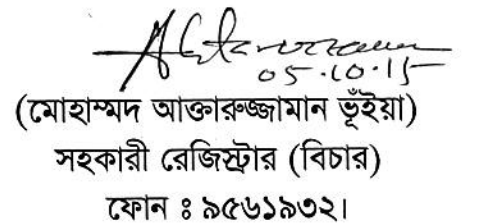 05.10.15
(মোহাম্মদ আক্তারুজ্জামান ভূঁইয়া)
সহকারী রেজিস্ট্রার (বিচার)
ফোন ঃ ৯৫৬১৯৩২।